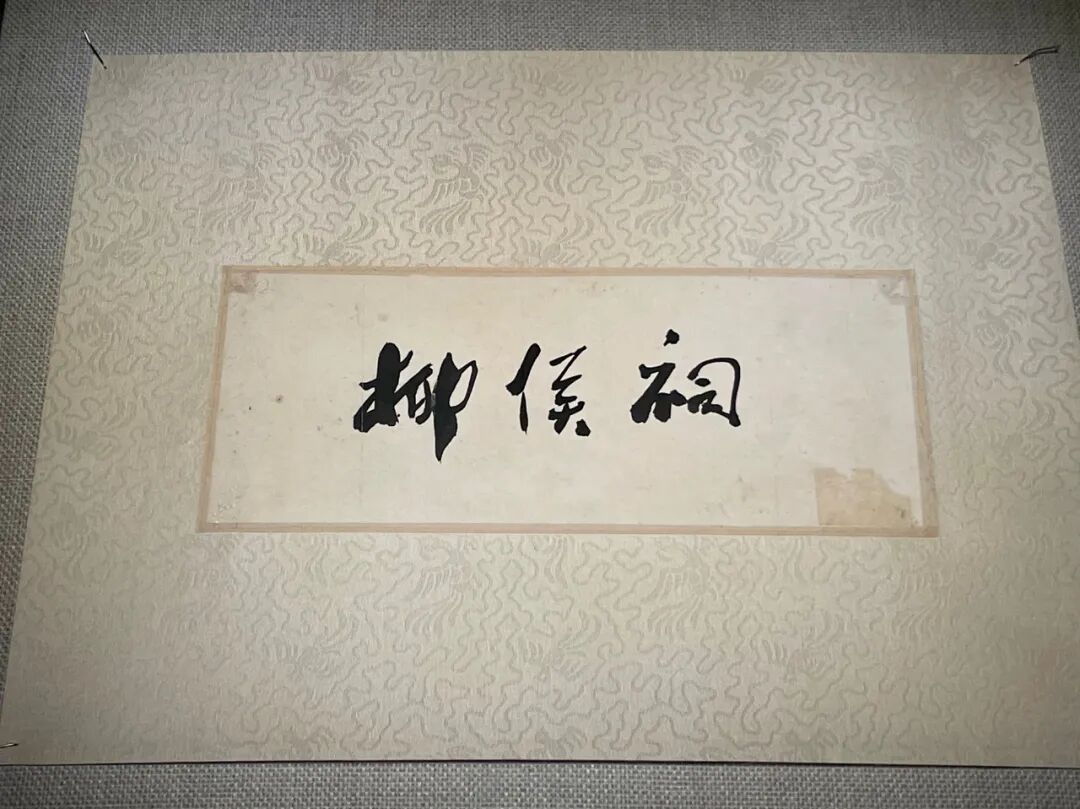 柳侯祠